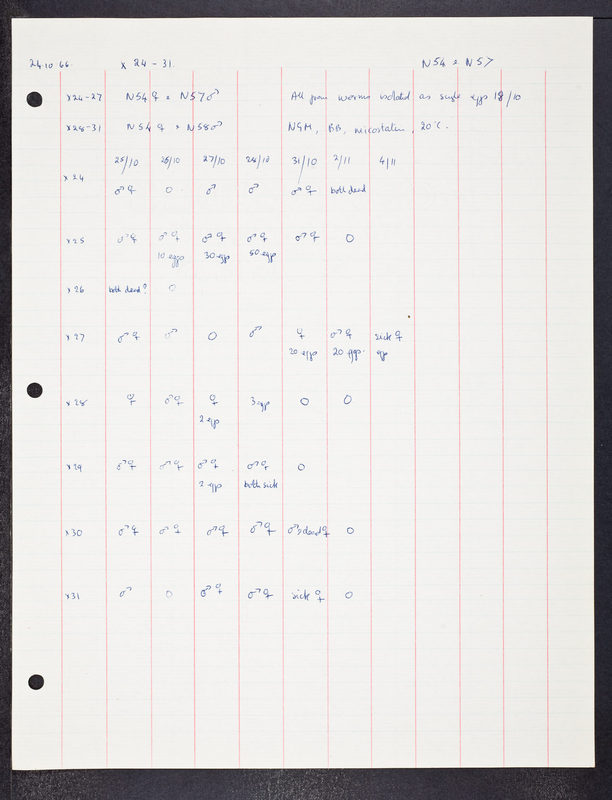 24.10.66. x 24 - 31. N54 & N57
x24-27 N54 ♀ x N57 ♂ All from worms isolated as single eggs 18/10
x28-31 N54 ♀ x N58 ♂ NGM, BB, 20°C.
25/10 26/10 27/10 28/10 31/10 2/11 4/11
x24
♂ ♀ 0 ♂ ♂ ♂ ♀ both dead
x25 ♂ ♀ ♂ ♀ ♂ ♀ ♂ ♀ ♂ ♀ 0
10 eggs 30 eggs 50 eggs
x26 both dead? 0
x27 ♂ ♀ ♂ 0 ♂ ♀ ♂ ♀ sick ♀
20 eggs 20 eggs. egg
x28 ♀ ♂ ♀ ♀ 3 eggs 0 0
2 eggs
x29 ♂ ♀ ♂ ♀ ♂ ♀ ♂ ♀ 0
2 eggs both sick
x30 ♂ ♀ ♂ ♀ ♂ ♀ ♂ ♀ ♂ dead ♀ 0
x31 ♂ 0 ♂ ♀ ♂ ♀ sick ♀ 0